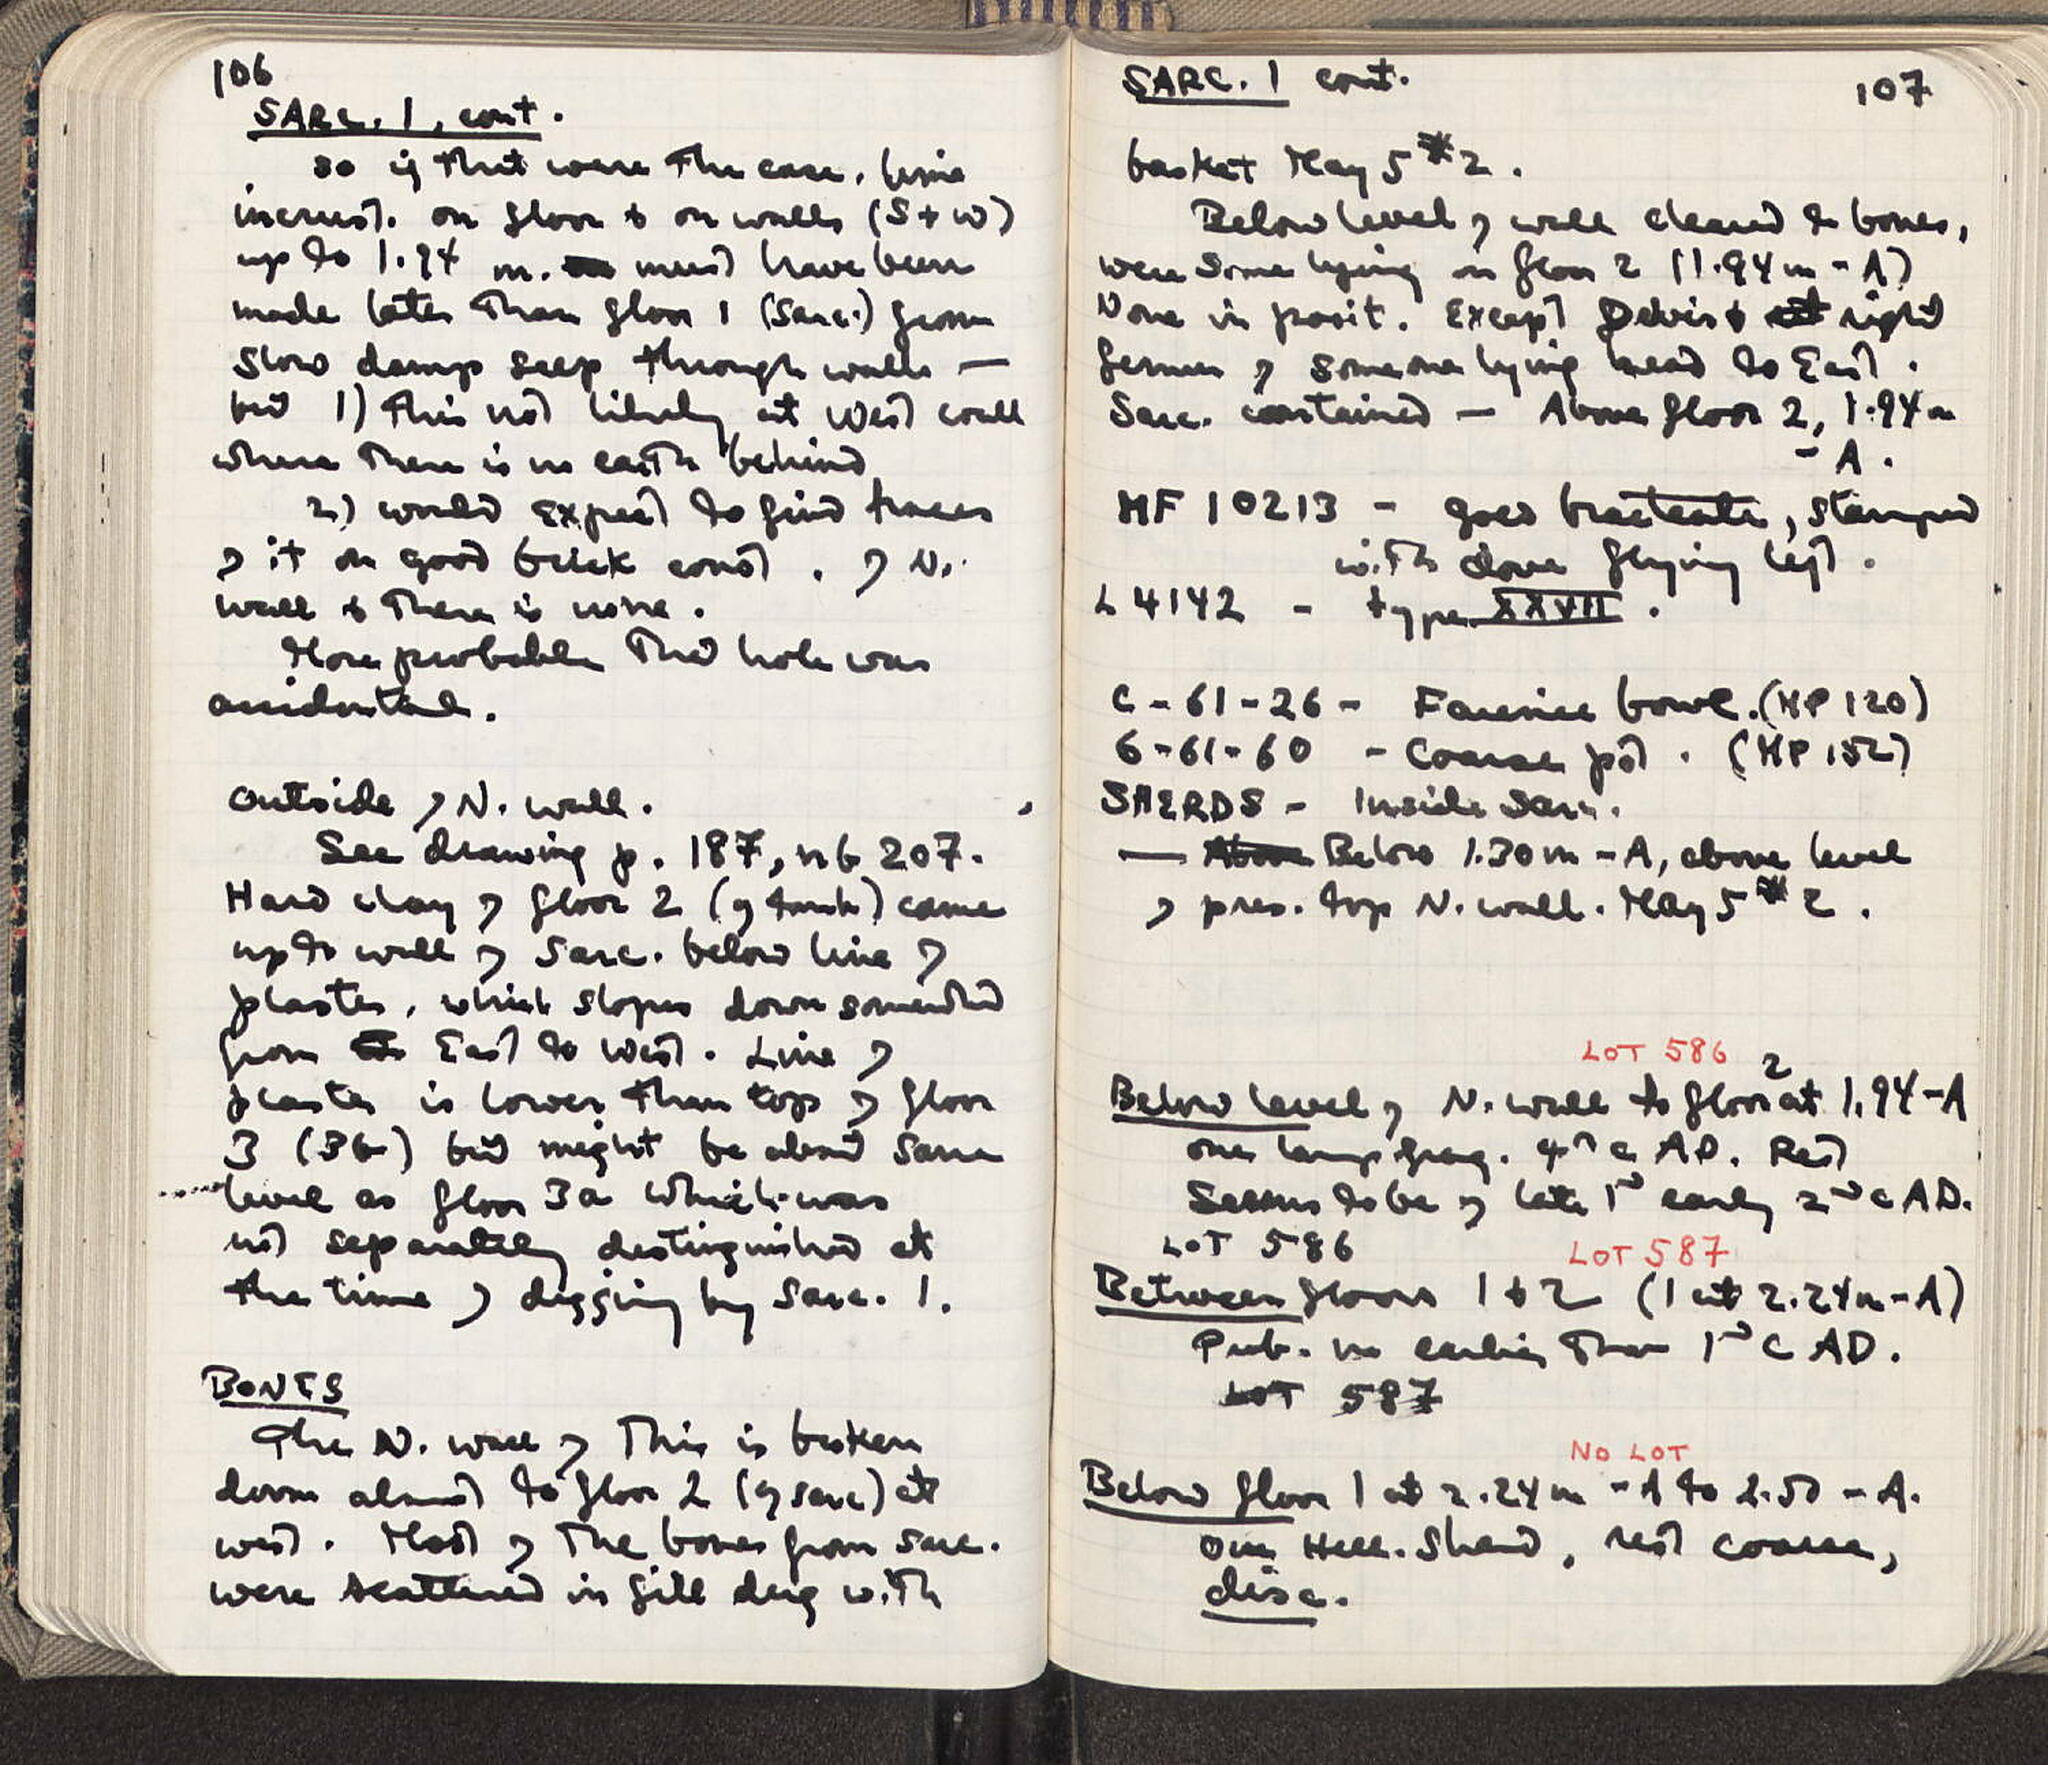 106
SARC. 1, cont.
so if that were the case. lime
incrust. on floor & on walls (S + W)
up to 1.94 m. must have been
made later than floor 1 (Sarc.) from
slow damp seep through walls —
but 1) this not likely at West wall
where there is no earth behind
2) would expect to find traces
of it on good brick const. of N.
wall & there is none.
More probable that hole was
accidental.
Outside of N. wall.
See drawing p. 187, nb 207.
Hard clay of floor 2 (of tomb) came
up to wall of Sarc. below line of
plaster, which slopes down somewhat
from East to West. Line of
plaster is lower than top of floor
3 (3b) but might be about same
level as floor 3a which was
not separately distinguished at
the time of digging by Sarc. 1.
BONES
The N. wall of this is broken
down almost to floor 2 (of sarc) at
west. Most of the bones from sarc.
were scattered in fill dug with
SARC. 1 cont.
107
basket May 5 #2.
Below level of wall cleared to bones,
were some lying on floor 2 (1.94 m - A)
None in posit. Except pelvis & right
femur of someone lying head to East.
Sarc. contained — Above floor 2, 1.94 m
- A.
MF 10213 - gold bracteate, stamped
with dove flying left.
L 4142 - type XXVII.
C-61-26 - Faience bowl. (MP 120)
6-61-60 - Coarse pot. (MP 152)
SHERDS - Inside Sarc.
— Above Below 1.30 m - A, above level
of pres. top N. wall. May 5 #2.
LOT 586
Below level of N. wall to floor 2 at 1.94 - A
one lamp frag. 4th c AD. Rest
seems to be of late 1st early 2nd c AD.
LOT 586
LOT 587
Between floors 1 & 2 (1 at 2.24 m - A)
Prob. no earlier than 1st C AD.
LOT 587
NO LOT
Below floor 1 at 2.24 m - A to 2.50 - A.
One Hell. sherd, rest coarse,
disc.